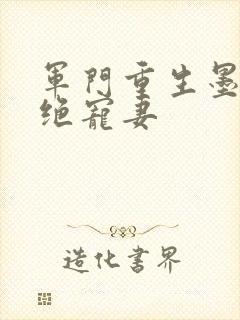 軍門重生墨
绝寵妻
造化書界